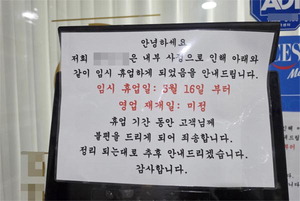 안녕하세요
저희 은 내부 사정으로 인해 아래와
같이 임시 휴업하게 되었음을 안내드립니다.
임시 휴업일: 5월 16일 부터
영업 재개일: 미정
휴업 기간 동안 고객님께
불편을 드리게 되어 죄송합니다.
정리 되는대로 추후 안내드리겠습니다.
감사합니다.